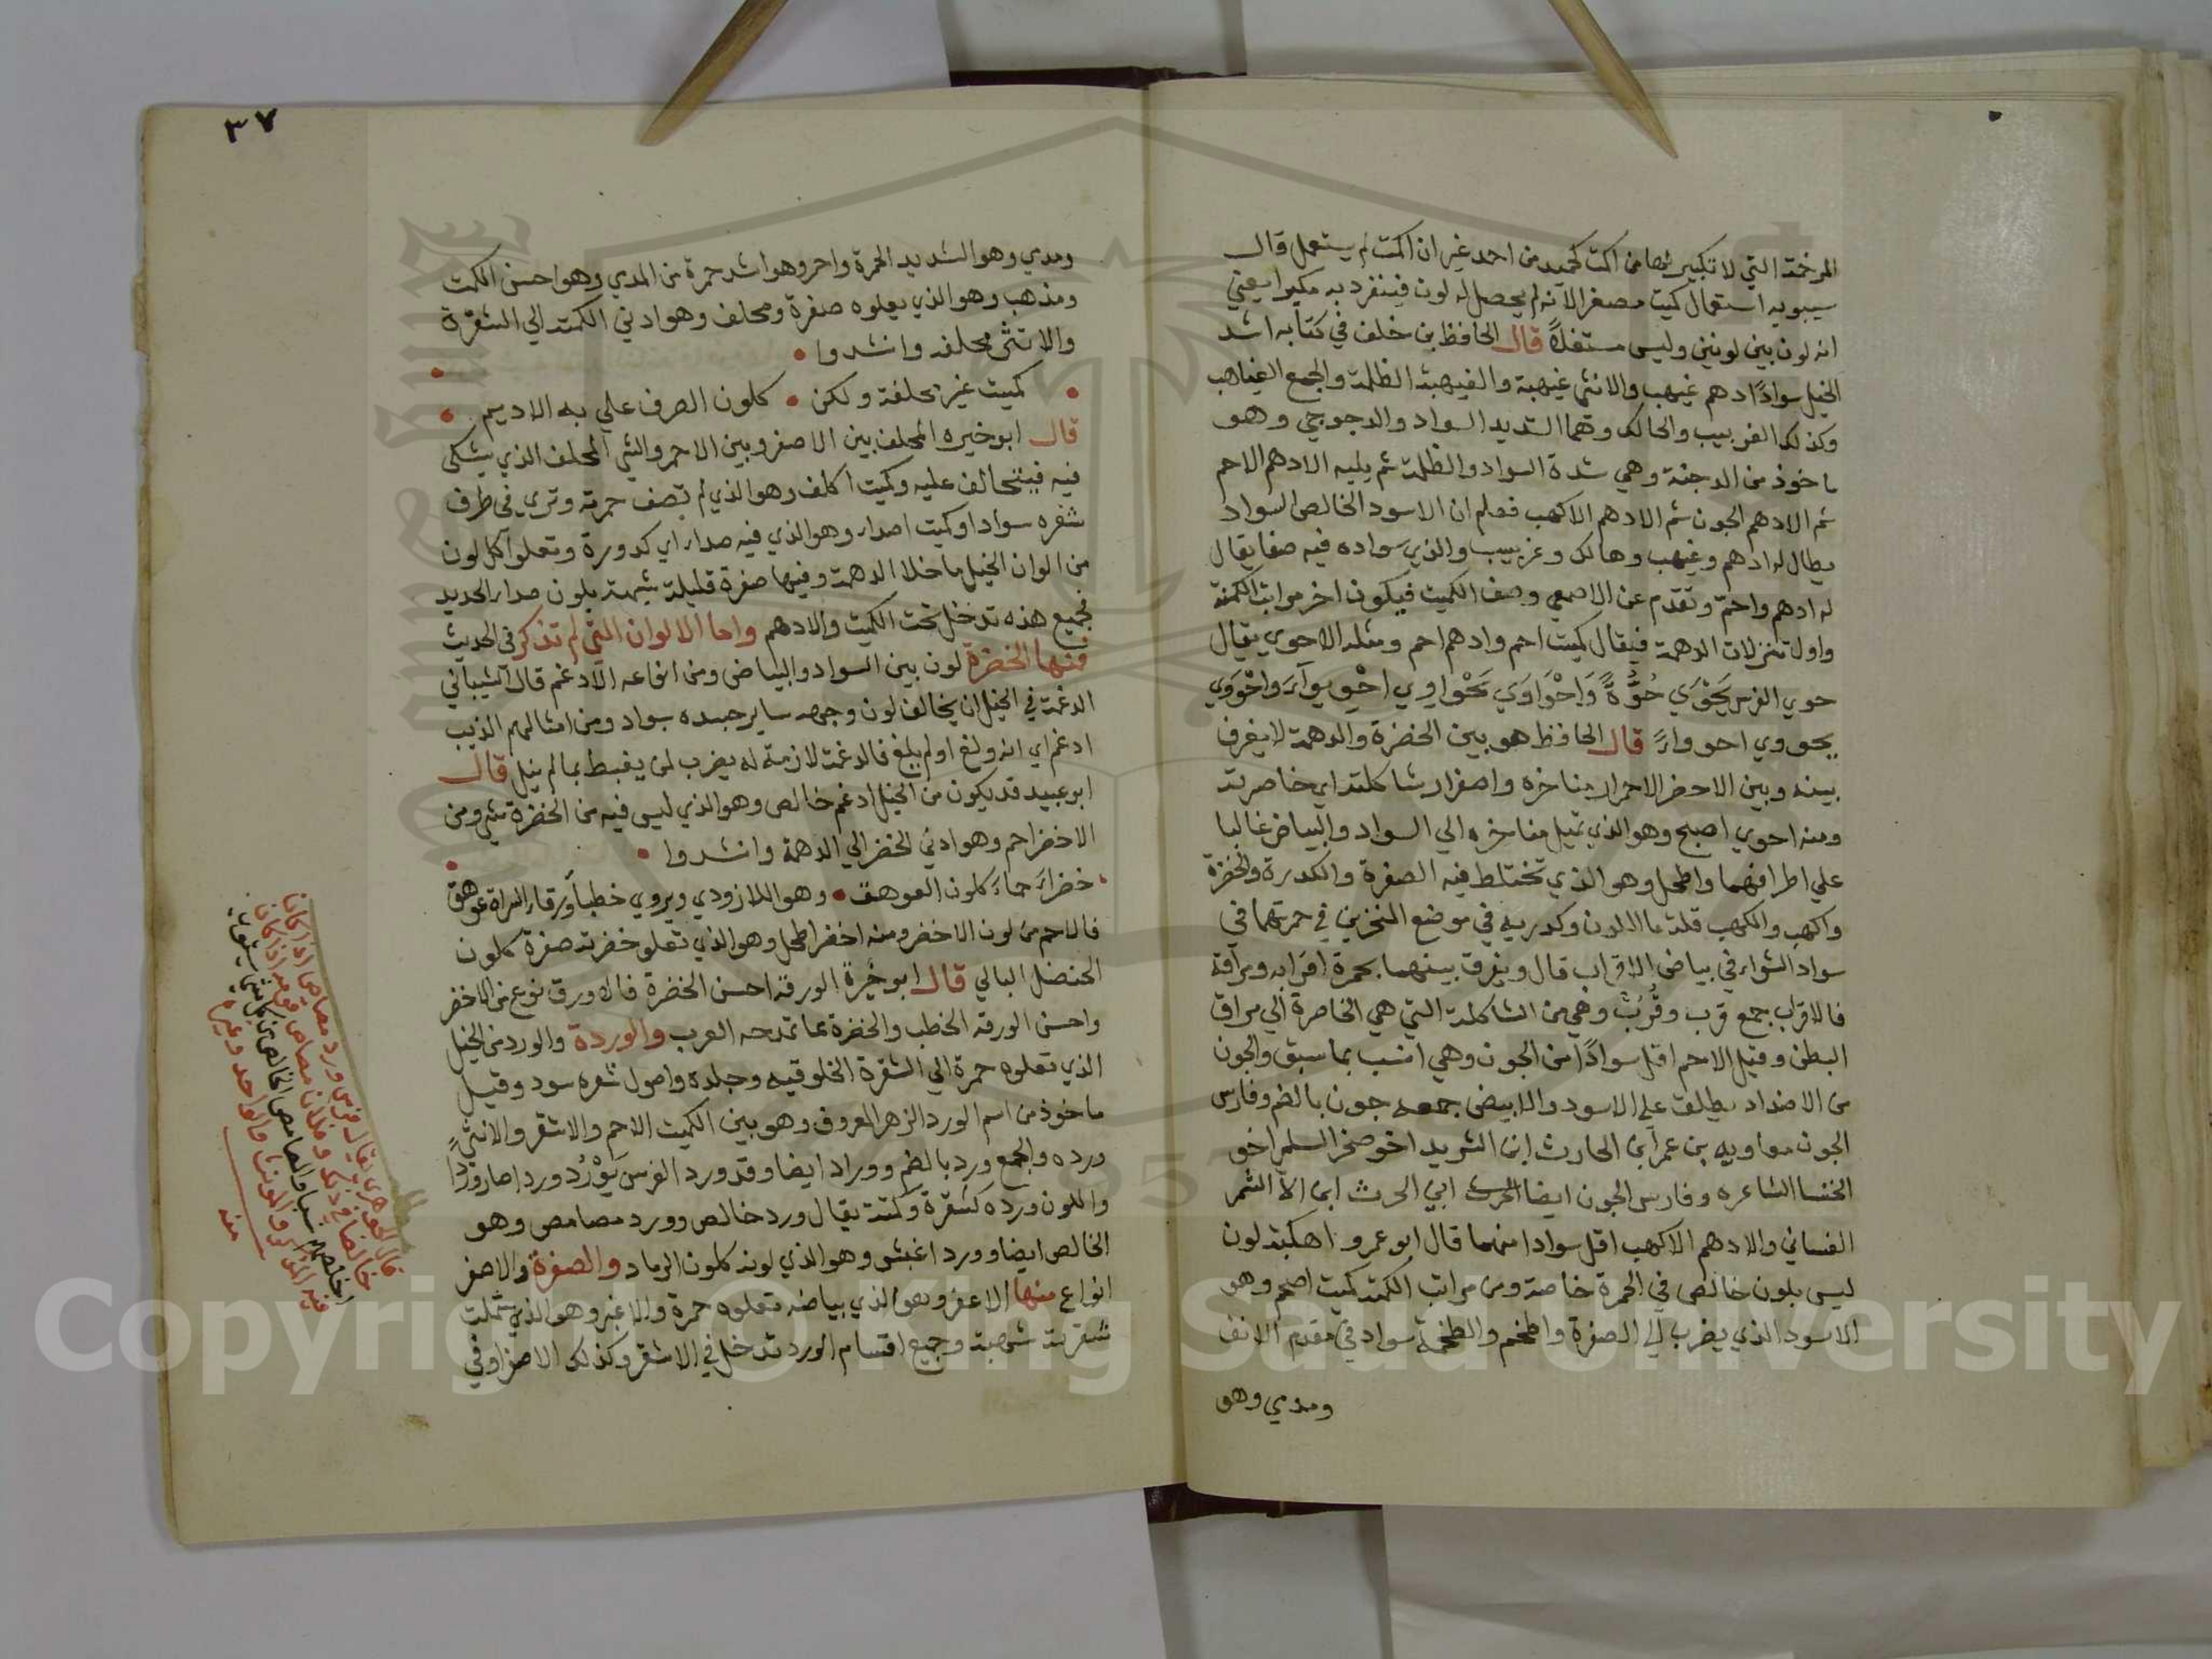 المرخمة التي لا تكبير لها من اكمت كحميد من احمد غير ان اكمت لم يستعمل قال
سيبويه استعمال كميت مصغر الانه لم يحصل له لون فينفرد به مكبرا يعني
انه لون بين لونين وليس مستقلا قال الحافظ بن خلف في كتابه اشد
الخيل سوادًا ادهم غيهب والانثى غيهبة والغيهبة الظلمة والجمع الغياهب
وكذلك الغربيب والحالك وهما الشديد السواد والدجوجي وهو
ماخوذ من الدجنة وهي شدة السواد والظلمة ثم يليه الادهم الاحم
ثم الادهم الجون ثم الادهم الاكهب فعلم ان الاسود الخالص السواد
يطال له ادهم وغيهب وحالك وغربيب والذي سواده فيه صفا يقال
له ادهم واحم وتقدم عن الاصمعي وصف الكميت فيكون اخر مراتب الكمتة
واول تنزلات الدهمة فيقال كميت احم وادهم احم ومثله الاحوي يقال
حوي الفرس يَحْوَي حُوَّةً وَاحْوَاوَي يَحْواوي احْوِيوآءَ واحْوَوَي
يحووي احوواءً قال الحافظ هو بين الخضرة والدهمة لا يفرق
بينه وبين الاخضر الاحمرار مناخره واصفرار شاكلته اي خاصرته
ومنه احوي اصبح وهو الذي تميل مناخره الي السواد والبياض غالبا
علي اطرافهما واطحل وهو الذي تختلط فيه الصفرة والكدرة والخضرة
واكهب والكهب قلة ما اللون وكدرته في موضع المنخرين في حمرتهما في
سواد الشواء في بياض الاقراب قال ويفرق بينهما بحمرة اقرابه ومراقه
فالاقراب جمع قرب وقُرُبٌ وهي من الشاكلة التي هي الخاصرة الي مراق
البطن وقيل الاحم اقل سوادًا من الجون وهي انسب بما سبق والجون
من الاضداد يطلق علي الاسود والابيض جمعه جون بالضم وفارس
الجون معاويه بن عمر ابن الحارث ابن الشريد اخو صخر السلم اخو
الخنسا الشاعره وفارس الجون ايضا الحرث ابي الحرث ابن الاالشمر
الغساني والادهم الاكهب اقل سوادا منهما قال ابو عمرو اهكبة لون
ليس بلون خالص في الحمرة خاصة ومن مراتب الكمتة كميت اصحم وهو
الاسود الذي يضرب الي الصفرة واطخم والطخمة سواد في مقدم الانف
ومدي وهو
٣٧
ومدي وهو الشديد الحمرة واحمر وهو اشد حمرة من المدي وهو احسن الكمت
ومذهب وهو الذي يعلوه صفرة ومحلف وهو ادني الكمتة الي الشقرة
والانثى محلفة وانشدوا
كميت غير محلفة ولكن كلون الصرف علي به الاديم
قال ابو خيره المحلف بين الاصفر وبين الاحمر والشي المحلف الذي يشكي
فيه فيتحالف عليه وكميت اكلف وهو الذي لم تصف حمرته وتري في طرف
شعره سوادا وكميت اصدا وهو الذي فيه صداء اي كدورة وتعلوا كل لون
من الوان الخيل ما خلا الدهمة وفيها صفرة قليلة شبهة بلون صداء الحديد
فجميع هذه تدخل تحت الكميت والادهم واما الالوان التي لم تذكر في الحديث
فمنها الخضرة لون بين السواد والبياض ومن انواعه الادغم قال الشيباني
الدغمة في الخيل ان يخالف لون وجهه ساير جسده بسواد ومن امثالهم الذيب
ادغم اي انه ولغ او لم يلغ فالدغمة لازمة له يضرب لمن يغبط بما لم ينل قال
ابو عبيد قد يكون من الخيل ادغم خالص وهو الذي ليس فيه من الخضرة شي ومن
الاخضر احم وهو ادني الخضر الي الدهمة وانشدوا
خضراء حماء كلون العوهق وهو اللازودي ويروي خطباء ورقاء السراة عوهق
فالاحم من لون الاخضر ومنه اخضر اطحل وهو الذي تعلو خضرته صفرة كلون
الحنضل البالي قال ابو خيرة الورقة احسن الخضرة قال اورق نوع من الاخضر
واحسن الورقه الخطب والخضرة مما تمدحه العرب والوردة والورد من الخيل
الذي تعلوه حمرة الي الشقرة الخلوقيه وجلده واصول شعره سود وقيل
ماخوذ من اسم الورد الزهر المعروف وهو بين الكميت الاحم والاشقر والانثي
ورده والجمع ورد بالضم ووراد ايضا وقد ورد الفرس يَوْرُدُ وردا صار وردا
واللون ورده كشقرة وكمتة يقال ورد خالص وورد مصامص وهو
الخالص ايضا وورد اغبش وهو الذي لونه كلون الرماد والصفرة والاصفر
انواع منها الاعفر وهو الذي بياضه تعلوه حمرة والاغبر وهو الذي شملت
شقرته شهبة وجميع اقسام الورد تدخل في الاشقر وكذلك الاصفر وفي
قال الجوهري يقال فرس ورد مصامص اذا كان
خالصا في ذلك وفلان مصامص قومه اذا كان
اخلصهم نسبا والمصامص الخالص من كل شي يستوي
فيه المذكر والمونث والواحد وغيره
منه
Copyright © King Saud University